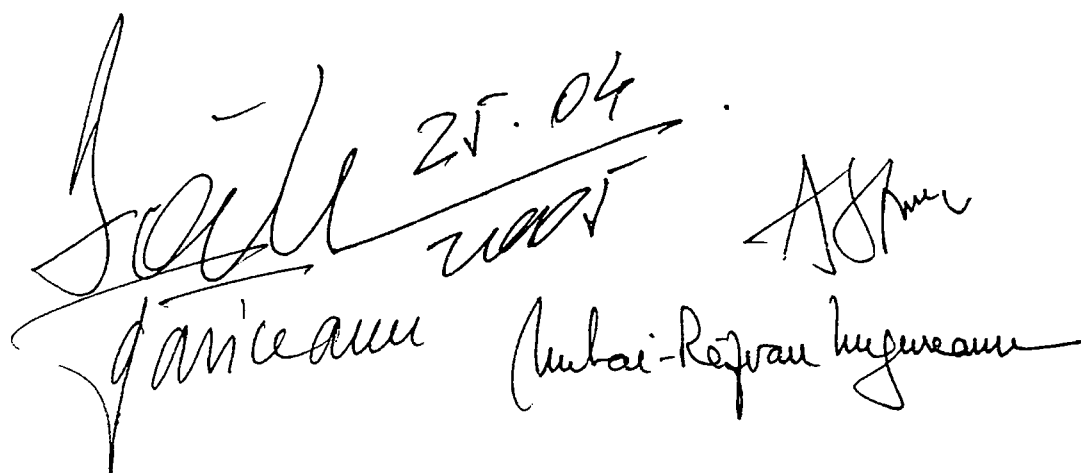 25.04
2005
Tăriceanu
Mihai-Răzvan Ungureanu